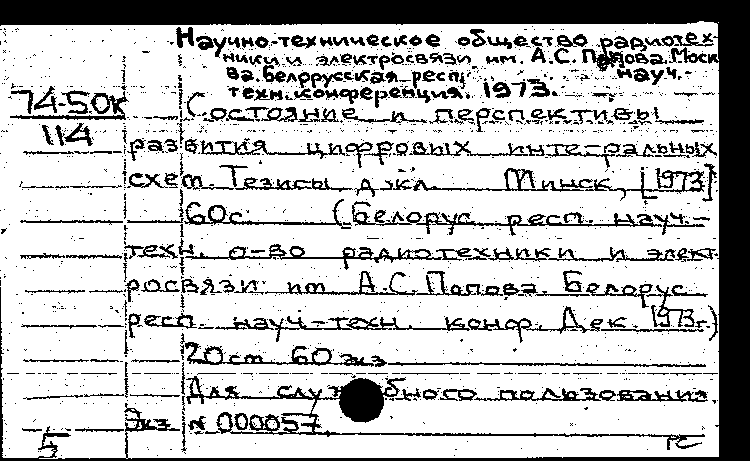 Научно-техническое общество радиотех-
ники и электросвязи им. А.С. Попова. Моск
ва. белорусская респ.
науч.-
техн. конференция. 1973.
74-50к
114
Состояние и перспективы
развития цифровых интегральных
схем. Тезисы докл. Минск, [1973]
60с. (Белорус. респ. науч.-
техн. о-во радиотехники и элект-
росвязи им А.С. Попова. Белорус
респ. науч-техн. конф. Дек. 1973г.)
20см 60 экз
Для служебного пользования.
Экз № 000057.